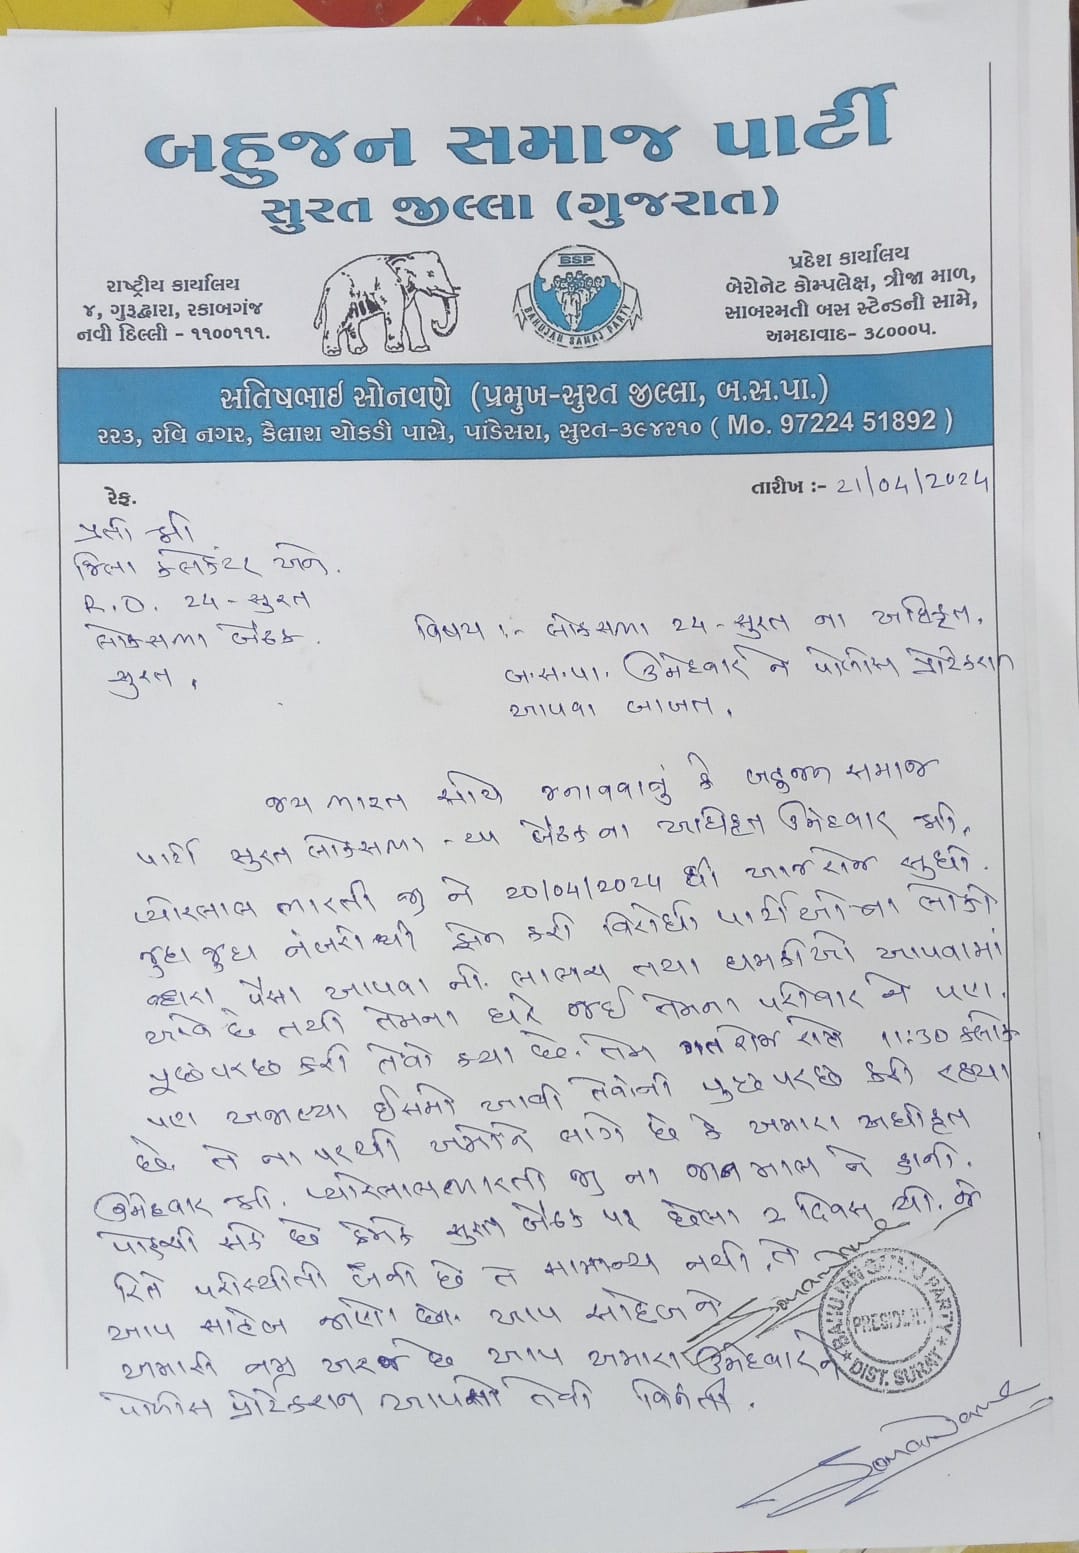 બહુજન સમાજ પાર્ટી
સુરત જીલ્લા (ગુજરાત)
રાષ્ટ્રીય કાર્યાલય
૪, ગુરૂદ્વારા, રકાબગંજ
નવી દિલ્લી - ૧૧૦૧૧૧.
BSP
BAHUJAN SAMAJ PARTY
પ્રદેશ કાર્યાલય
બેરોનેટ કોમ્પલેક્ષ, ત્રીજા માળ,
સાબરમતી બસ સ્ટેન્ડની સામે,
અમદાવાદ- ૩૮૦૦૦૫.
સતિષભાઇ સોનવણે (પ્રમુખ-સુરત જીલ્લા, બ.સ.પા.)
૨૨૩, રવિ નગર, કૈલાશ ચોકડી પાસે, પાંડેસરા, સુરત-૩૯૪૨૧૦ ( Mo. 97224 51892 )
રેફ.
તારીખ :- 21/04/2024
પ્રતી શ્રી
જિલા કલેકટર અને.
R.O. 24 - સુરત
લોકસભા બેઠક.
સુરત.
વિષય :- લોકસભા 24 - સુરત ના અધિકૃત.
બ.સ.પા. ઉમેદવાર ને પોલીસ પ્રોટેકશન
આપવા બાબત.
જય ભારત સાથે જનાવવાનું કે બહુજન સમાજ
પાર્ટી સુરત લોકસભા - બેઠક ના અધિકૃત ઉમેદવાર શ્રી.
પ્યારેલાલ ભારતી જી ને 20/04/2024 થી આજ રોજ સુધી.
જુદા જુદા નંબરો થી ફોન કરી વિરોધી પાર્ટીઓ ના લોકો
દ્વારા પૈસા આપવા ની. લાલચ તથા ધમકીઓ આપવામાં
આવે છે તથી તેમના ઘરે જઈ તેમના પરીવાર ને પણ.
પૂછપરછ કરી તેવો કયા છે. તેમ ગત રોજ રાત્રે 11:30 કલાકે
પણ અજાણ્યા ઈસમો આવી તેવોની પુછપરછ કરી રહ્યા
છે. તે ના પરથી અમોને લાગે છે કે અમારા અધીકૃત
ઉમેદવાર શ્રી. પ્યારેલાલ ભારતી જી ના જાન માલ ને હાની.
પોહચી સકે છે કેમકે સુરત બેઠક પર છેલા 2 દિવસ થી. જે
રિતે પરીસ્થીતી બની છે તે સામાન્ય નથી. તે
આપ સાહેબ જાણો છો. આપ સાહેબ ને
અમારી નમ્ર અરજ છે આપ અમારા ઉમેદવાર ને
પોલીસ પ્રોટેકશન આપસો તેવી વિનંતી.
BAHUJAN SAMAJ PARTY
PRESIDENT
DIST. SURAT